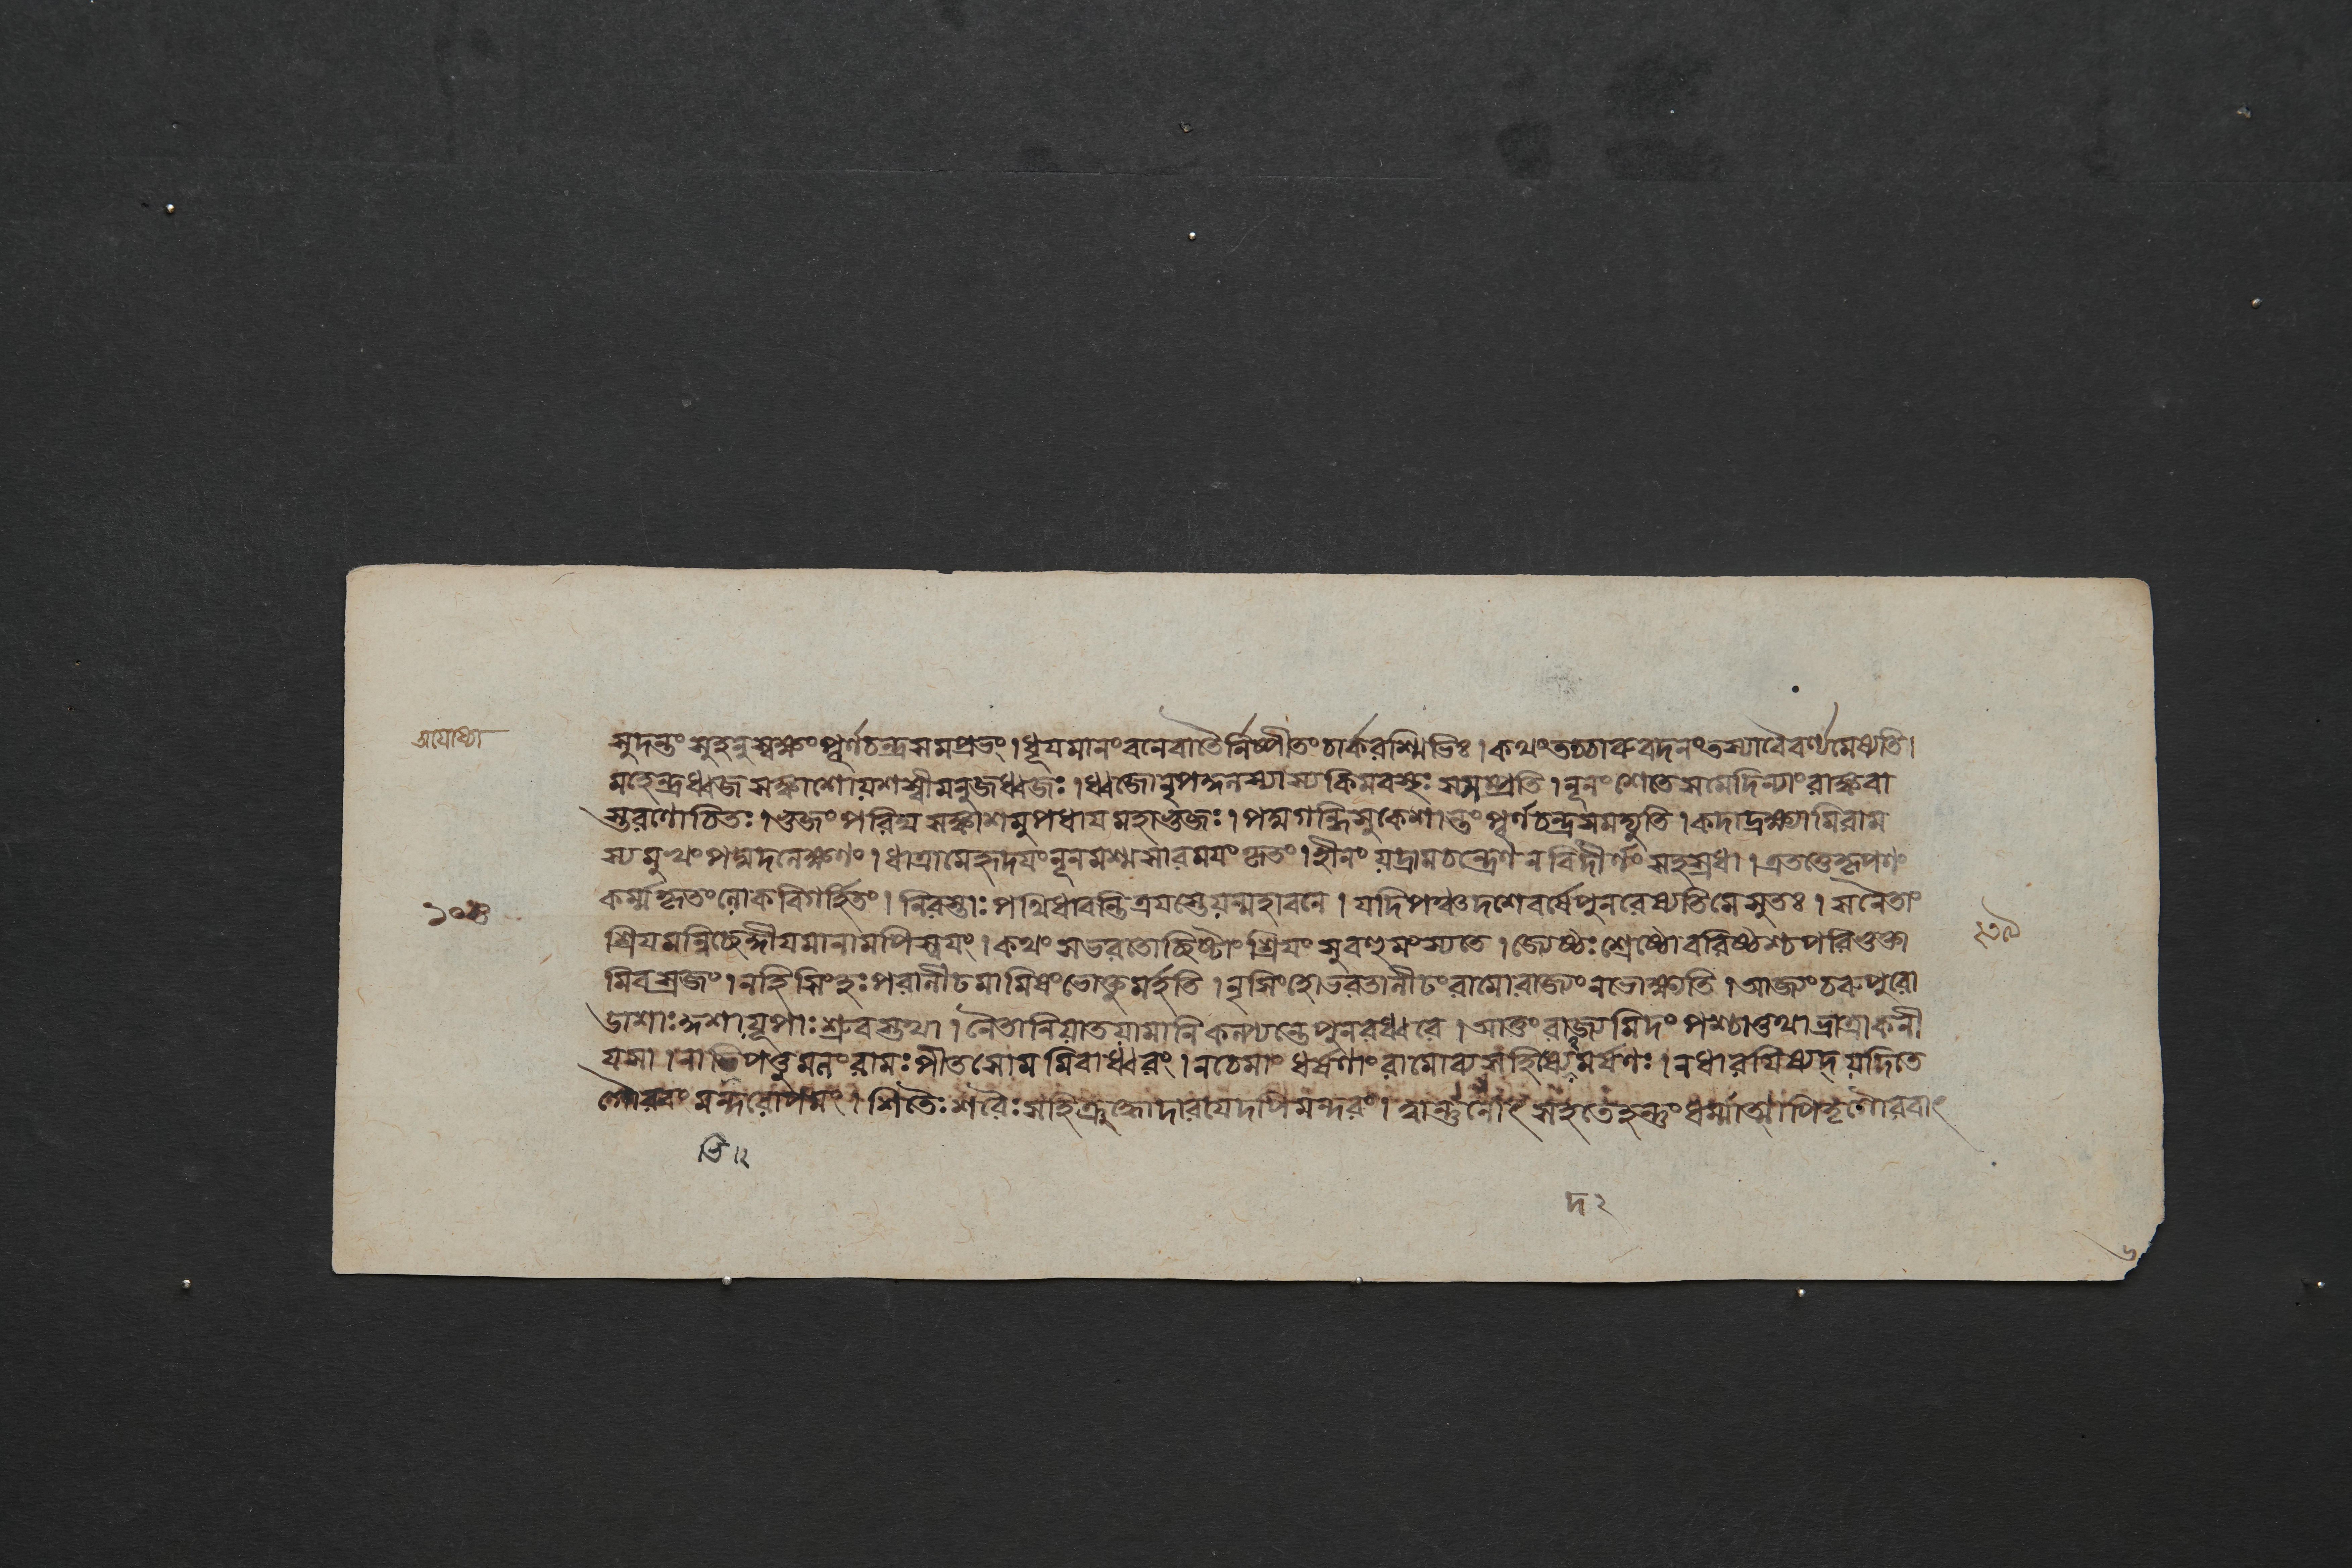 অযোধ্যা
সুদন্তং সুহনুস্বক্ষং পূর্ণচন্দ্রসমপ্রভং । ধূযমানং বনেবাতৈর্নিষ্পীতং চার্করশ্মিভিঃ । কথং তচ্চারুবদনং তস্যাবৈবর্ণ্যমেষ্যতি ।
মহেন্দ্রধ্বজসঙ্কাশো যশস্বী মনুজধ্বজঃ । ধ্বজো নৃপন্দনস্যাস্য কিমবস্থঃ সসম্প্রতি । নূনং শেতে সমেদিন্যাং রাঙ্কবা
স্তরণোচিতঃ । ভুজং পরিঘসঙ্কাশমুপধায মহাভুজঃ । পদ্মগন্ধি সুকেশান্তং পূর্ণচন্দ্রসমদ্যুতি । কদা দ্রক্ষ্যামি রাম
স্য মুখং পদ্মদলেক্ষণং । ধাত্রা মে হৃদযং নূনমশ্মসারমযং কৃতং । হীনং যদ্রামচন্দ্রেণ ন বিদীর্ণং সহস্রধা । এতত্তে কৃপণং
কর্ম্ম কৃতং লোকবিগর্হিতং । নিরস্তাঃ পথি ধাবন্তি ত্রযস্তে যন্মহাবনে । যদি পঞ্চদশে বর্ষে পুনরেষ্যতি মে সুতঃ । সনৈতাং
১০৪
২৩৯
শ্রিযমন্বিচ্ছেদ্দীযমানামপি স্বযং । কথং স ভরতোচ্ছিষ্টাং শ্রিযং সুবহু মংস্যতে । জ্যেষ্ঠঃ শ্রেষ্ঠো বরিষ্ঠশ্চ পরিভুক্তা
মিব স্রজং । নহি সিংহঃ পরালীঢমামিষং ভোক্তুমর্হতি । নৃসিংহো ভরতালীঢং রামো রাজ্যং ন ভোক্ষ্যতি । আজ্যং চরুপুরো
ডাশাঃ কুশা যূপাঃ শ্রুবস্তথা । নৈতানি যাতযামানি কল্প্যন্তে পুনরধ্বরে । আত্তং রাজ্যমিদং পশ্চাত্তথা ভ্রাত্রা কনী
যসা । নাভিপত্তুমলং রামঃ পীতসোমমিবাধ্বরং । ন চেমাং ধর্ষণাং রামো মর্ষণঃ । ন ধারযিষ্যদ্যদি তে
গৌরবং মন্দরোপমং । শিতৈঃ শরৈঃ সহি ক্রুদ্ধো দারযেদপি মন্দরং । ত্বান্তু নোৎসহতে হন্তুং ধর্ম্মাত্মা পিতৃগৌরবাৎ
তি ।২
দ ২